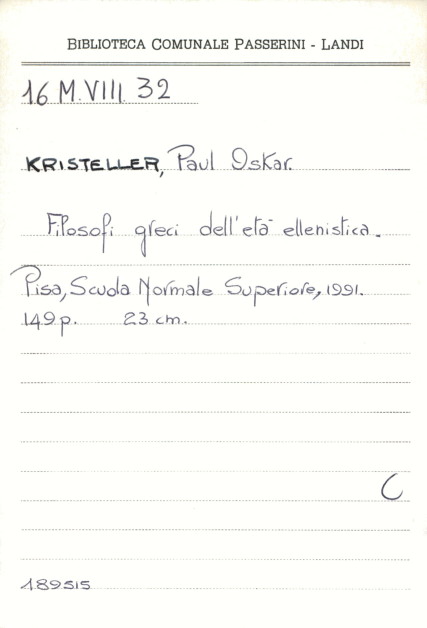 BIBLIOTECA COMUNALE PASSERINI - LANDI
16 M.VIII. 32
KRISTELLER, Paul Oskar.
Filosofi greci dell'età ellenistica.
Pisa, Scuola Normale Superiore, 1991.
149 p. 23 cm.
C
189515